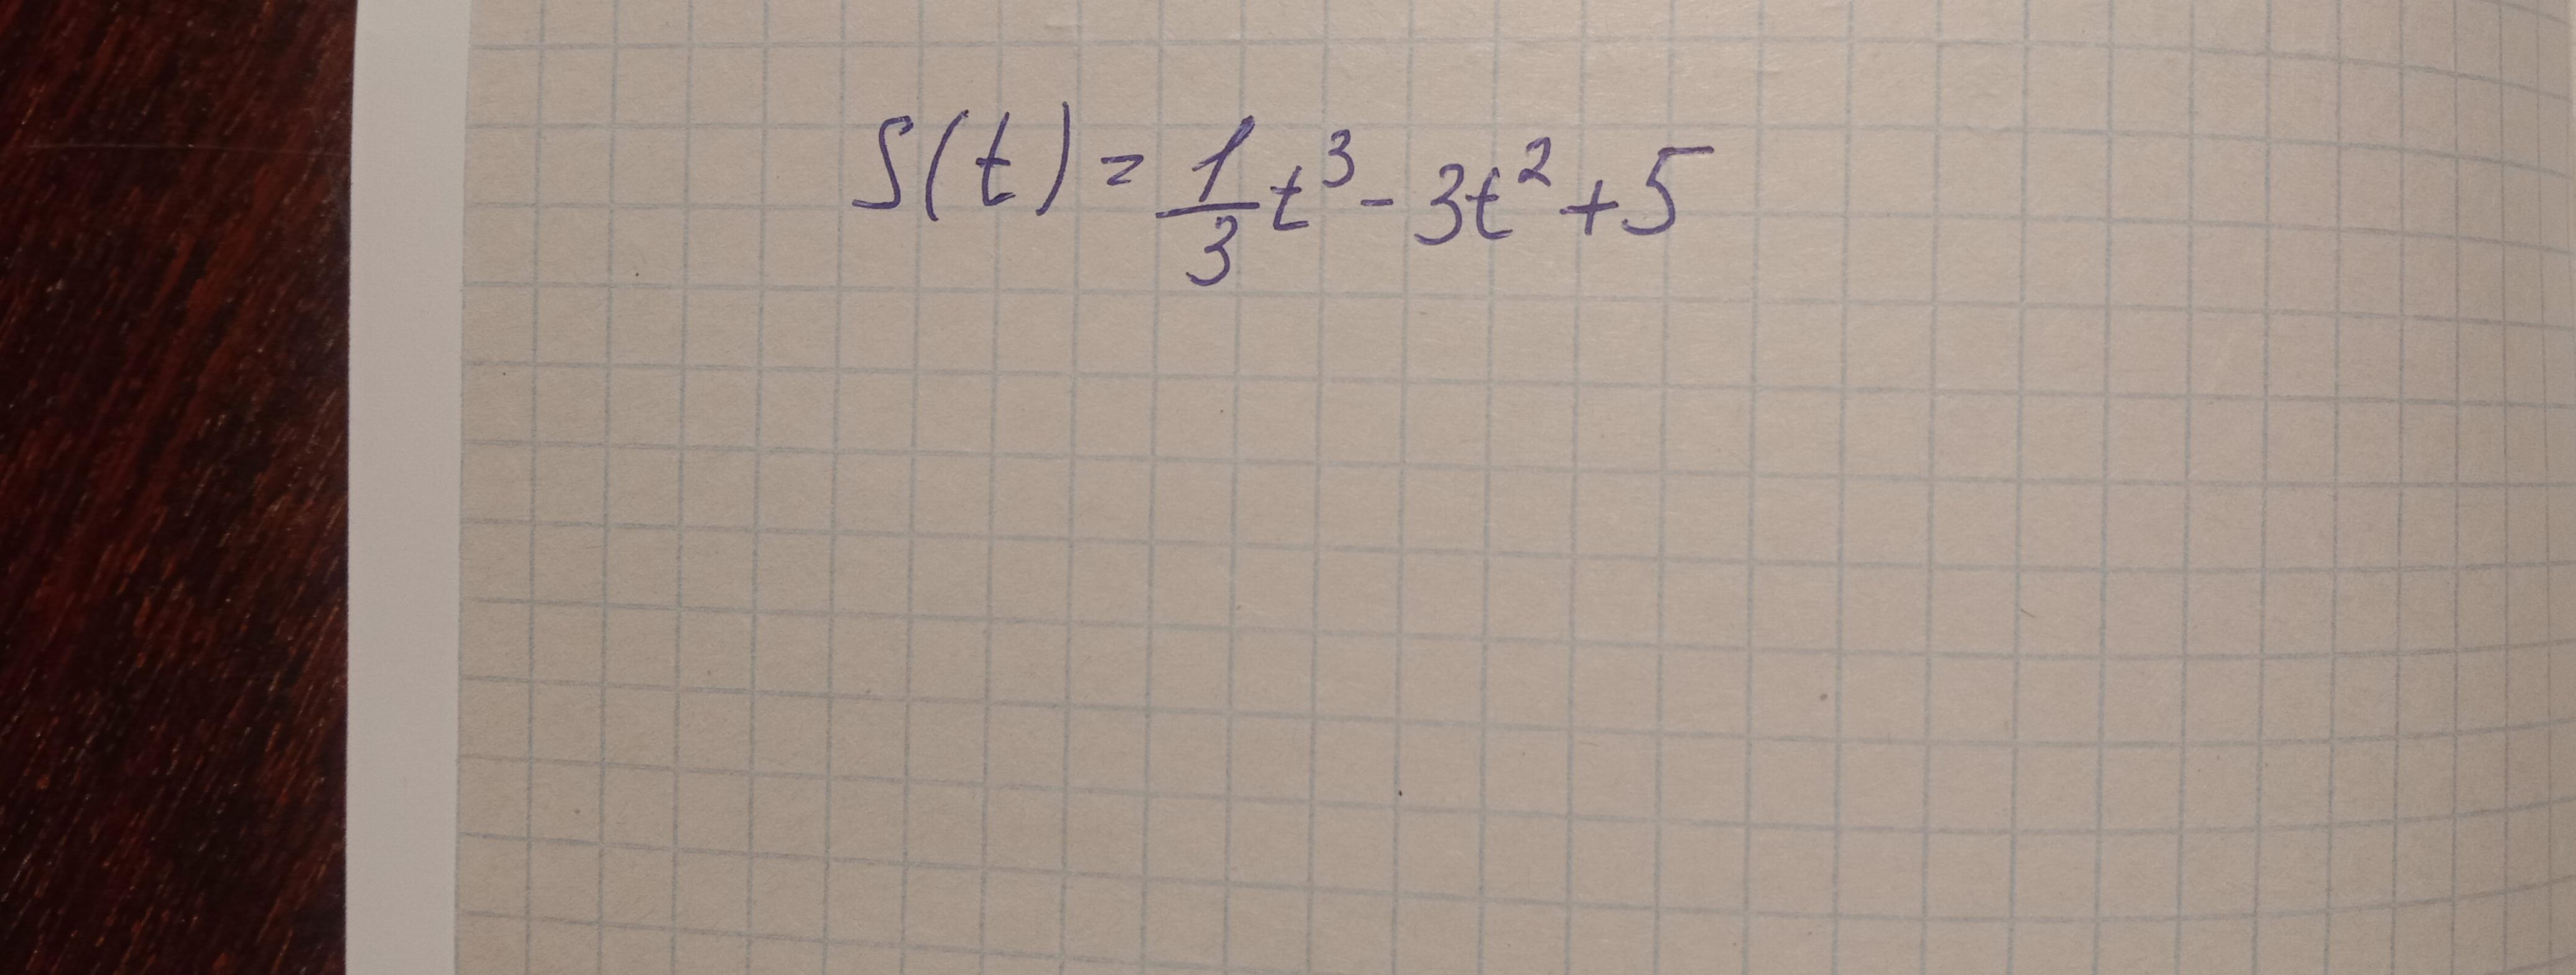 S(t) = 1/3 t³ - 3t² + 5